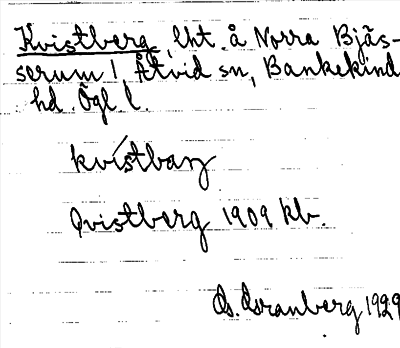 Kvistberg, lht. å Norra Bjäs-
serum 1, Åtvid sn, Bankekind
hd. Ögl l.
kvístbarj
Qvistberg 1909 kb.
G. Granberg 1929